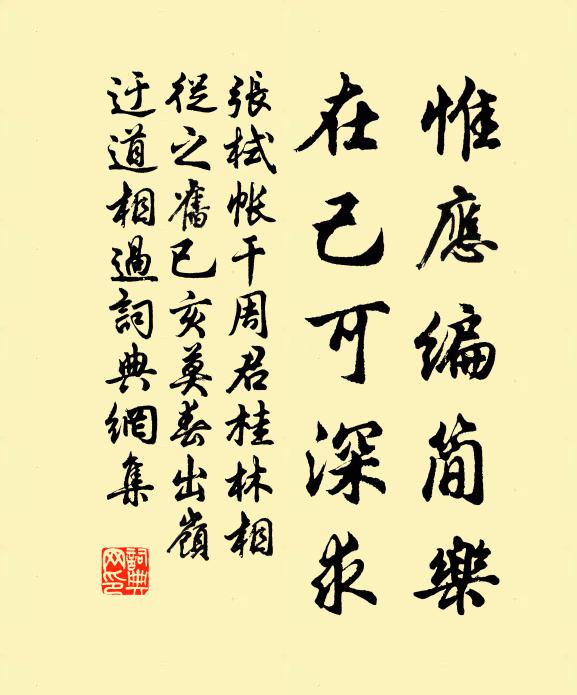 惟應編簡樂
在己可深求
張栻帳干周君桂林相
從之舊已亥莫春出嶺
迂道相過詞典網集
詞典网印